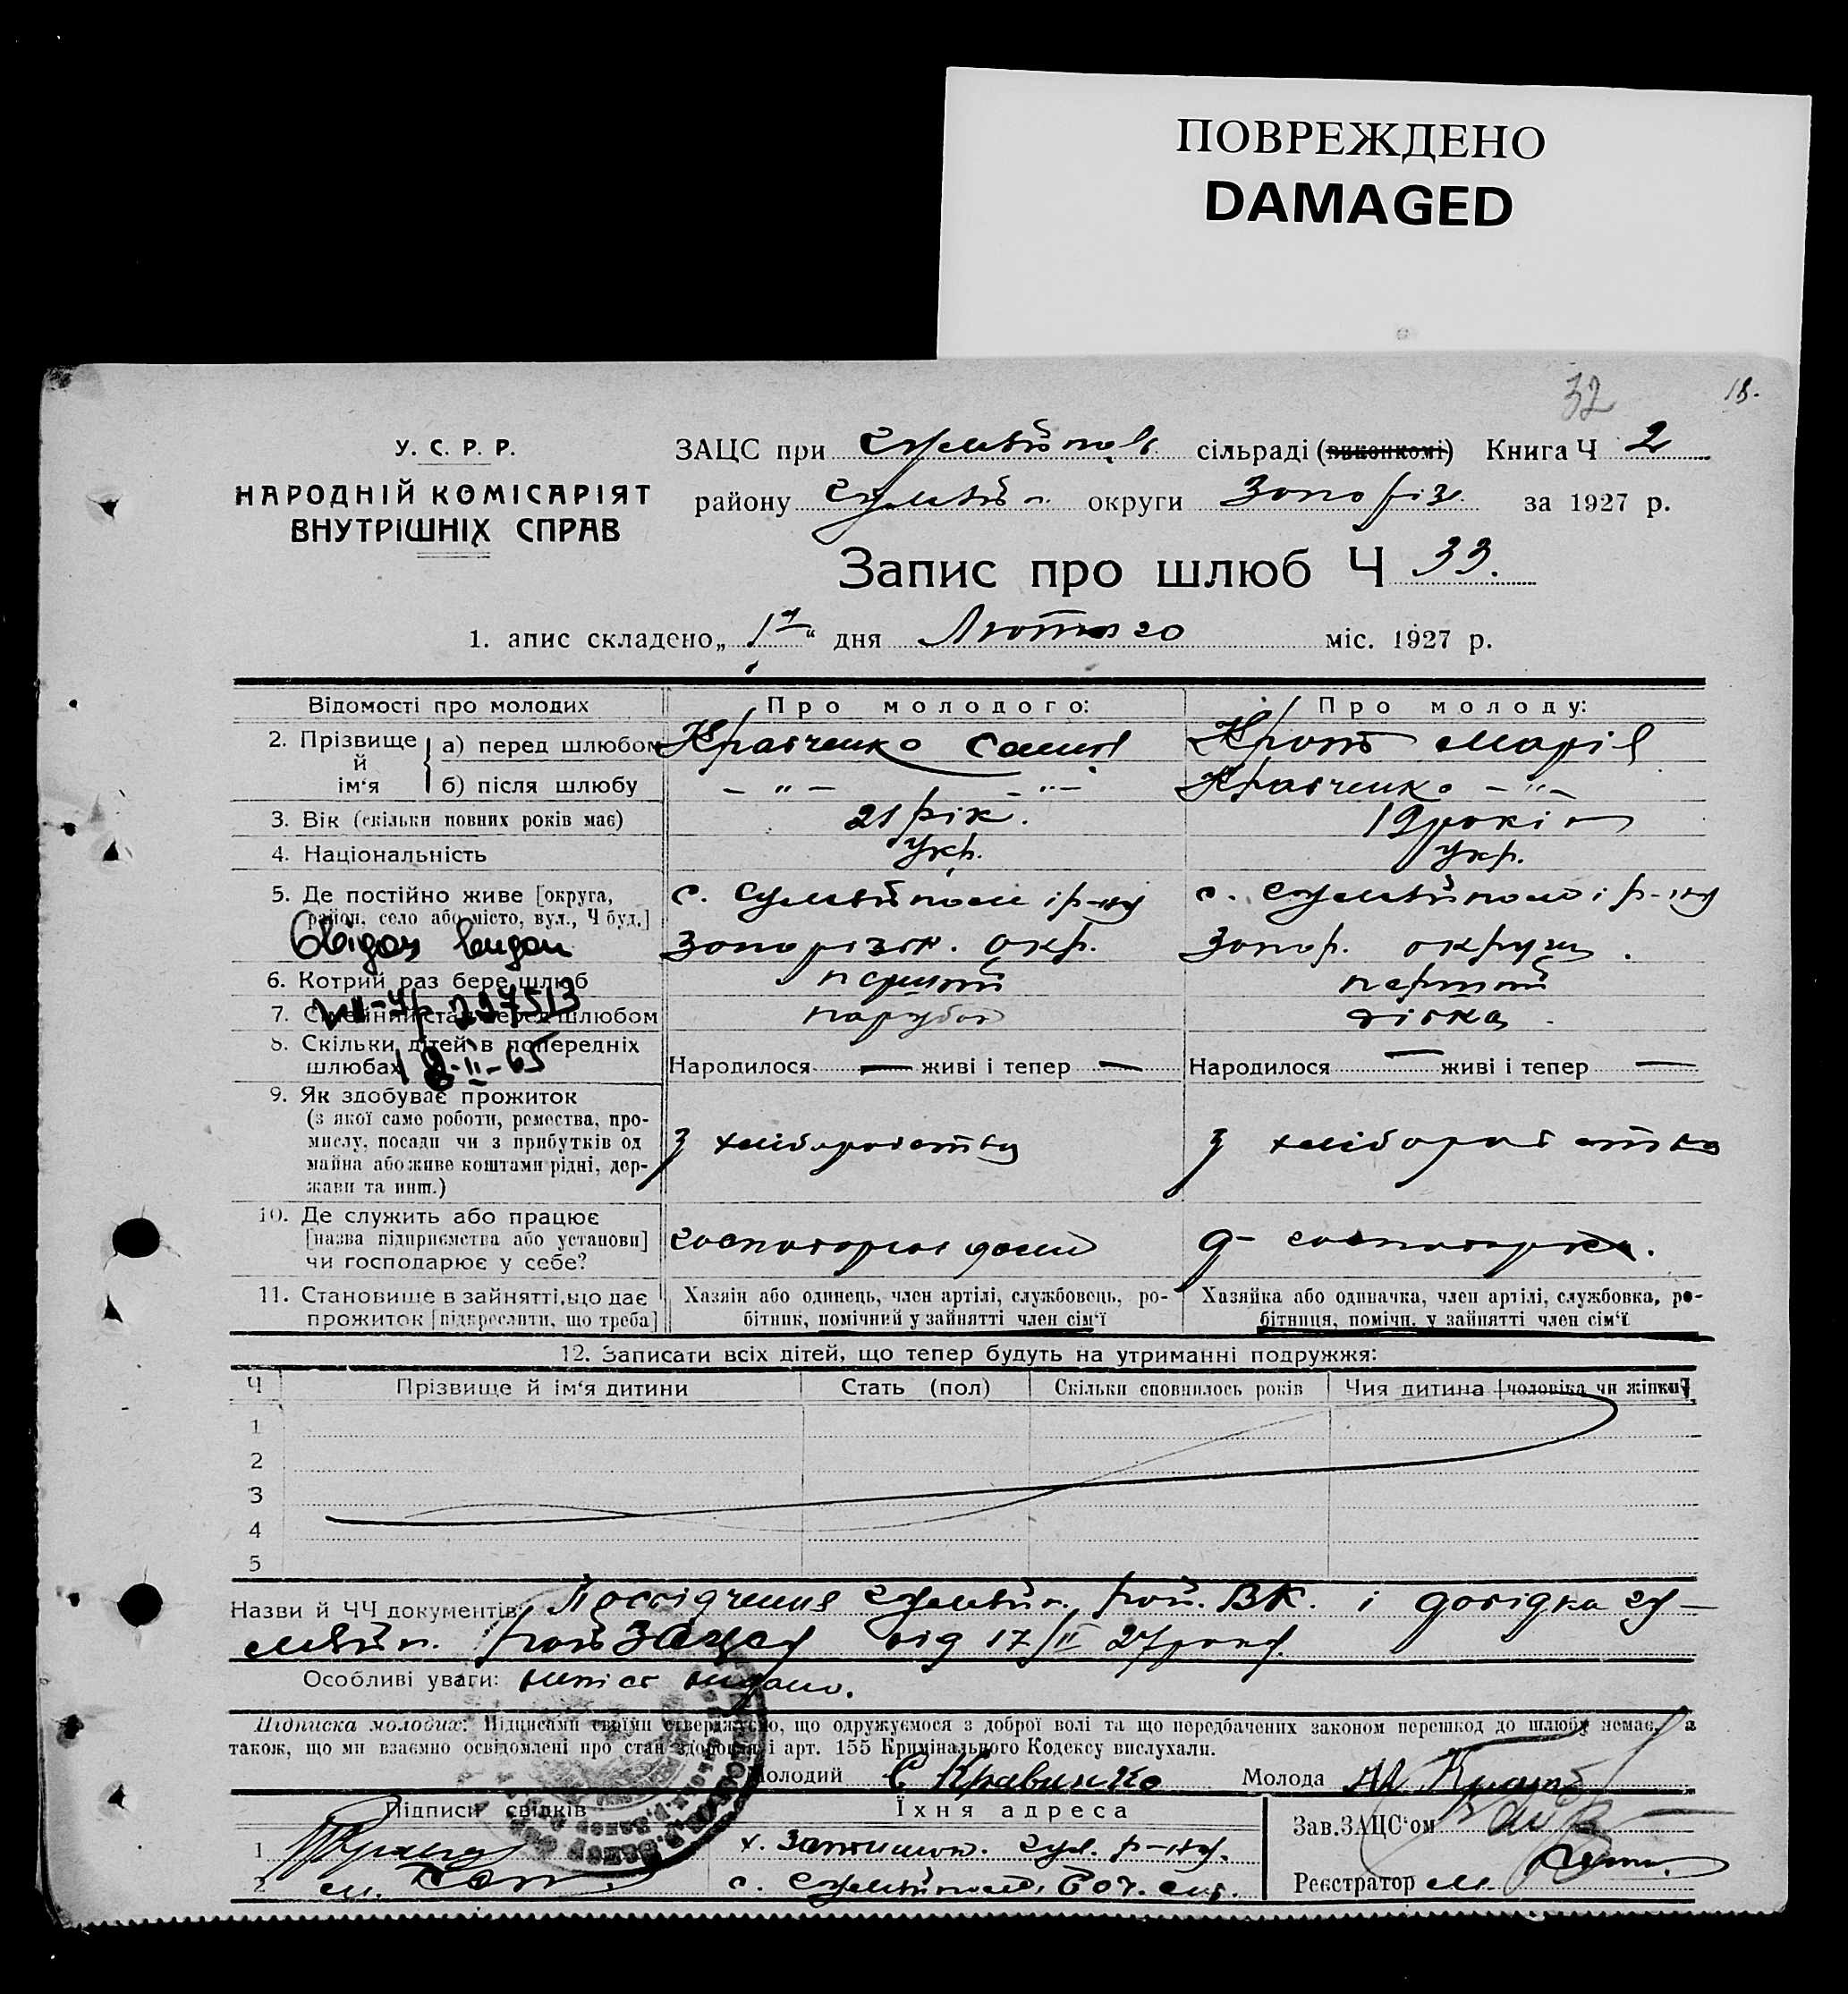 ПОВРЕЖДЕНО
DAMAGED
32
18.
У. С. Р. Р.
НАРОДНІЙ КОМІСАРІЯТ
ВНУТРІШНІХ СПРАВ
ЗАЦС при Гуляйпол. сільраді (виконкомі) Книга Ч 2
району Гуляйп. округи Запоріз. за 1927 р.
Запис про шлюб Ч 33.
1. апис складено „ “ дня Лютого міс. 1927 р.
Відомості про молодих Про молодого: Про молоду:
2. Прізвище й ім‘я а) перед шлюбом Кравченко Марія
б) після шлюбу – „ – – „ – Кравченко – „ –
3. Вік (скільки повних років має) 21 рік. 19 років
4. Національність Укр. Укр.
5. Де постійно живе [округа, с. Гуляйполе і р-ну с. Гуляйполе і р-ну
район, село або місто, вул., Ч буд.]
Запорізьк. окр. Запор. округи.
6. Котрий раз бере шлюб перший перший
7. Сімейний стан перед шлюбом парубок дівка
297513
8. Скільки дітей в попередніх
шлюбах Народилося — живі і тепер — Народилося — живі і тепер —
18-II-65
9. Як здобуває прожиток
(з якої само роботи, ремества, про-
мислу, посади чи з прибутків од
майна або живе коштами рідні, дер-
жави та инш.)
З хліборобства З хліборобства
10. Де служить або працює
[назва підприємства або установи]
чи господарює у себе?
11. Становище в зайнятті, що дає Хазяїн або одинець, член артілі, службовець, ро- Хазяйка або одиначка, член артілі, службовка, ро-
прожиток [підкреслити, що треба] бітник, помічний у зайнятті член сім‘ї бітниця, помічн. у зайнятті член сім‘ї
12. Записати всіх дітей, що тепер будуть на утриманні подружжя:
Ч Прізвище й ім‘я дитини Стать (пол) Скільки сповнилось років Чия дитина [чоловіка чи жінки]
1
2
3
4
5
Назви й ЧЧ документів: Посвідчення Гуляйп. рай. ВК. і довідка Гу-
ляйп. рай ЗАЦСу від 17/II 27 року.
Особливі уваги: видано.
Підписка молодих: Підписами своїми стверджуємо, що одружуємося з доброї волі та що передбачених законом перешкод до шлюбу немає, а
також, що ми взаємно освідомлені про стан здоровля і арт. 155 Кримінального Кодексу вислухали.
Молодий С Кравченко Молода М
Підписи свідків Їхня адреса Зав. ЗАЦС‘ом
1 х. Гул. р-ну.
2 с. Гуляйполе Реєстратор